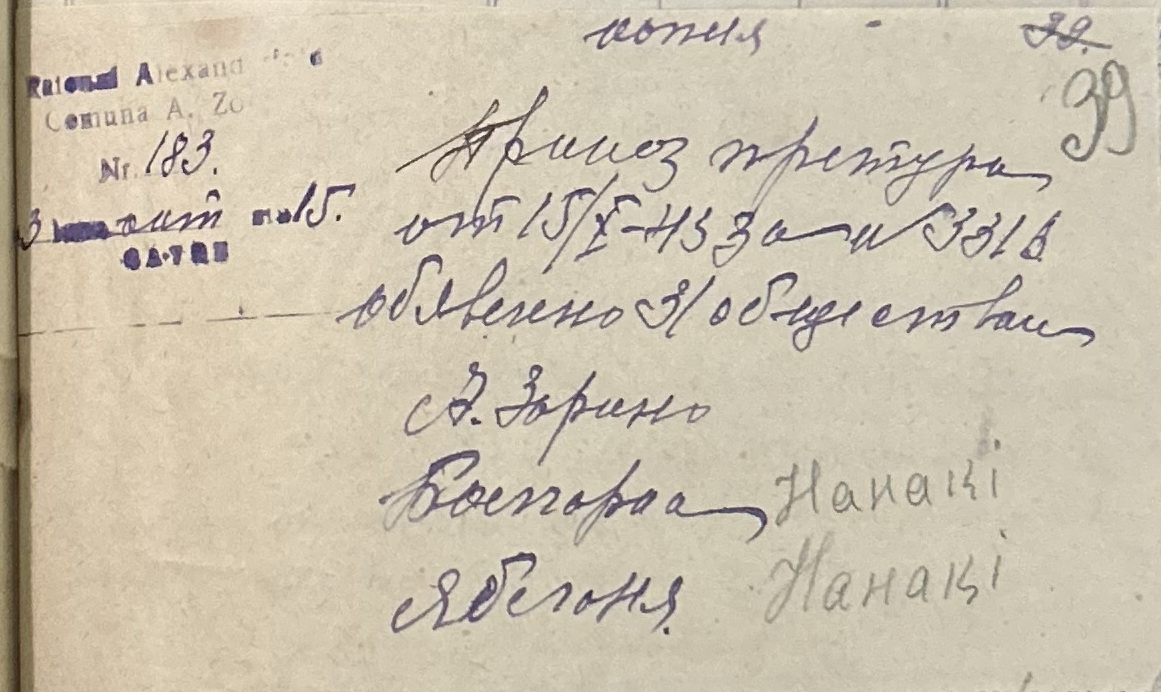 копия
39.
39
Raionul Alexand
Comuna A. Zo
Nr. 183.
3 окт 15.
Приказ претура
от 15/X-43 за N 3316
обявенно 3/ обществам
А. Зорино
Нанакі
Яблоня Нанакі